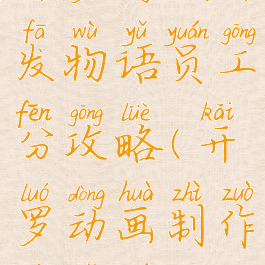 fā wù yǔ yuán gōng
发物语员工
fēn gōng lüè kāi
分攻略(开
luó dòng huà zhì zuò
罗动画制作